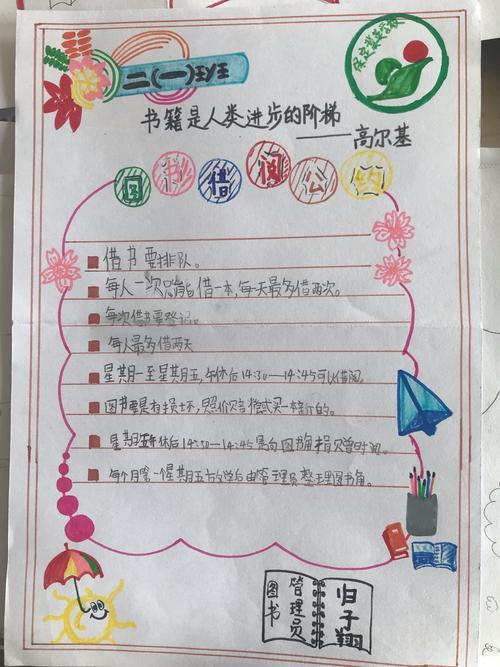 二(一)班
书籍是人类进步的阶梯
——高尔基
图书借阅公约
借书要排队。
每人一次只能借一本,每天最多借两次。
每次借书要登记。
每人最多借两天
星期一至星期五,午休后14:30—14:45可以借阅。
图书要是有损坏,照价赔偿或买一本新的。
星期五午休后14:30—14:45是向图书角捐赠时间。
每个月第一个星期五放学后由管理员整理图书角。
图书
管理员
归子翔